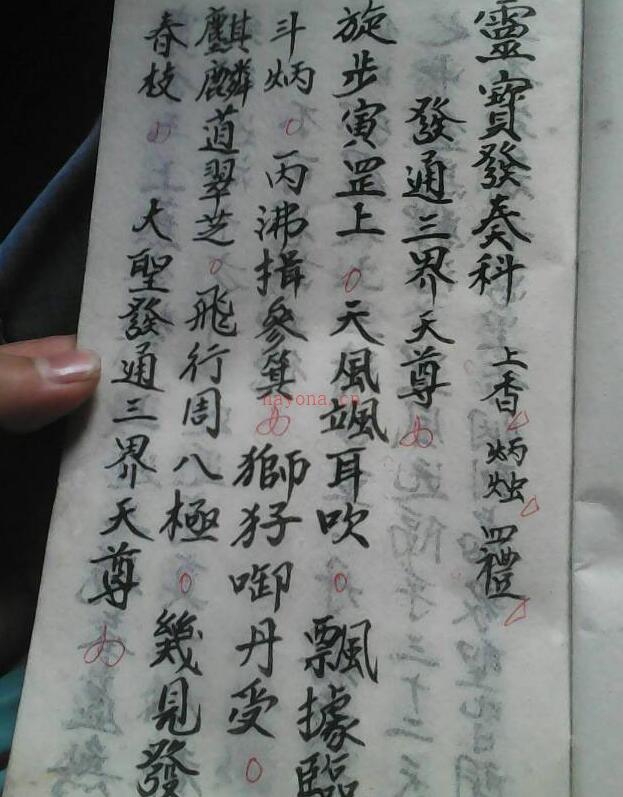 靈寶發奏科 上香 炳烛 四禮
發通三界天尊
旋步寅罡上 天風颯耳吹 飄據臨
斗炳 丙沸揖參箕 獅豸啣丹受
麒麟蒞翠芝 飛行周八極 幾見發
春枝 大聖發通三界天尊
nayona.cn